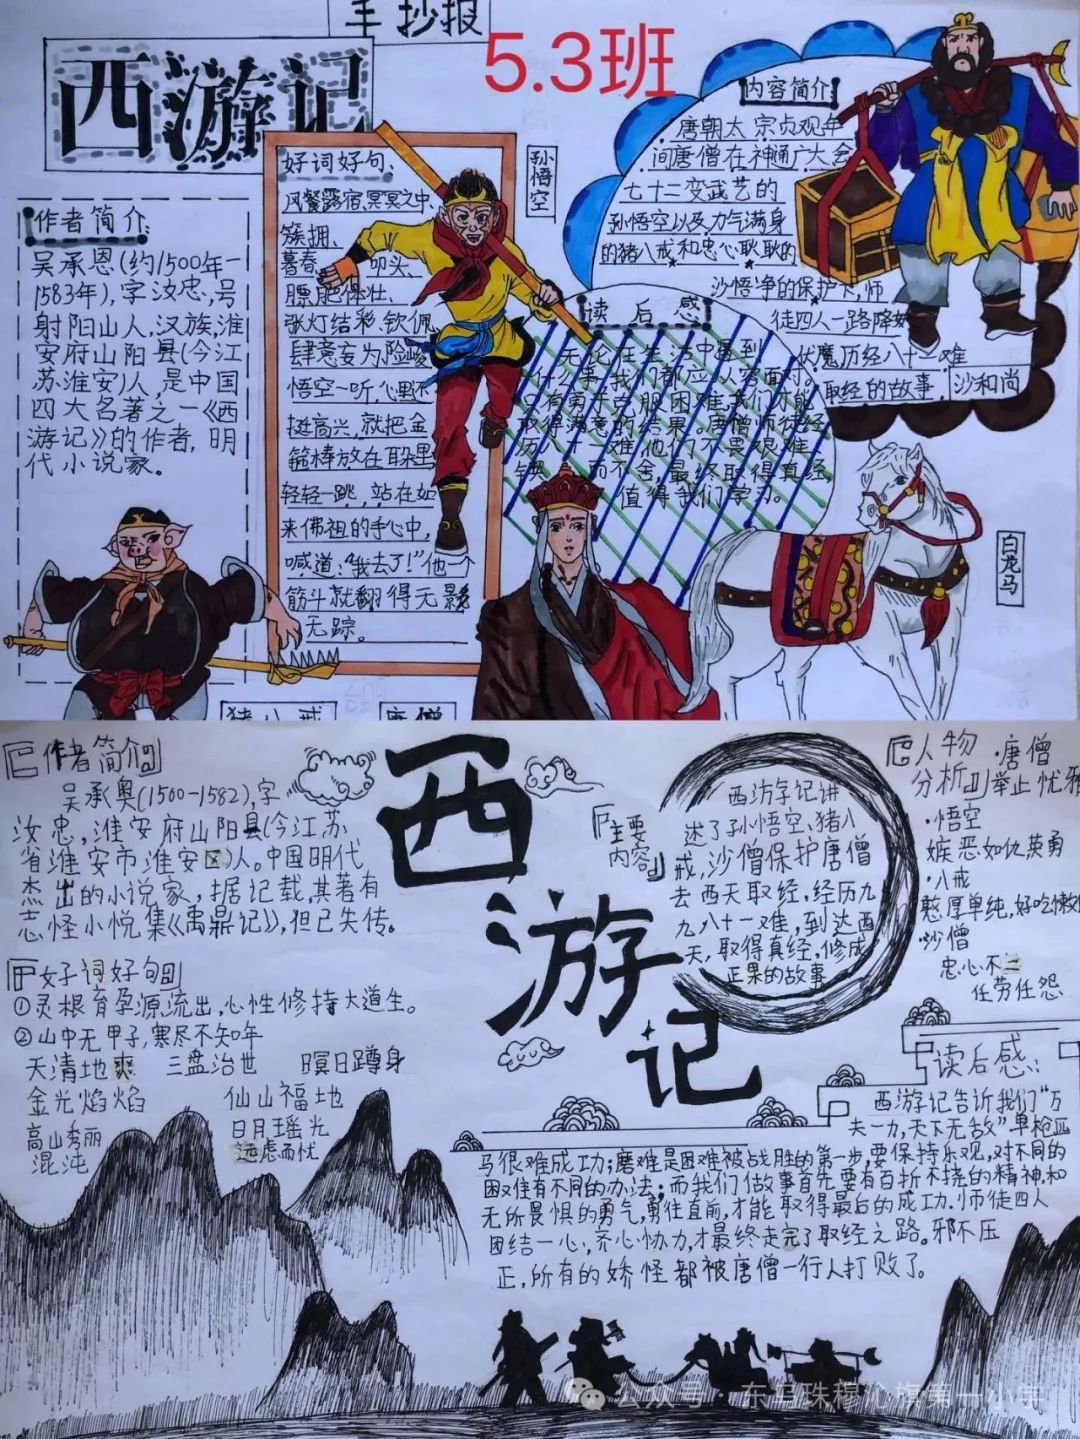 手抄报
5.3班
西游记
作者简介:
吴承恩(约1500年-
1583年),字汝忠,号
射阳山人,汉族,淮
安府山阳县(今江
苏淮安)人,是中国
四大名著之一《西
游记》的作者,明
代小说家。
好词好句、
风餐露宿、冥冥之中、
簇拥、
暮春、叩头、
膘肥体壮、
张灯结彩、钦佩、
肆意妄为、险峻
悟空一听,心里还
挺高兴,就把金
箍棒放在耳朵里
轻轻一跳,站在如
来佛祖的手心中,
喊道:“我去了!”他一个
筋斗就翻得无影
无踪。
孙悟空
内容简介
唐朝太宗贞观年
间唐僧在神通广大会
七十二变武艺的
孙悟空以及力气满身
的猪八戒和忠心耿耿的
沙悟净的保护下,师
徒四人一路降妖
伏魔历经八十一难
取经的故事
沙和尚
读后感
无论在生活中遇到
什么事,我们都应
困难,我们才能
取得满意的结果,唐僧师徒经
历八十一难他们不畏艰难
而不舍,最终取得真经,
值得我们学习。
白龙马
猪八戒
唐僧
『作者简介』
吴承奥(1500-1582),字
汝忠,淮安府山阳县(今江苏
省淮安市淮安区)人。中国明代
杰出的小说家,据记载,其著有
志怪小说集《禹鼎记》,但已失传。
『好词好句』
①灵根育孕源流出,心性修持大道生。
②山中无甲子,寒尽不知年
天清地爽 三盘治世 暝日蹲身
金光焰焰 仙山福地
高山秀丽 日月瑶光
混沌 远虑而忧
西游记
『主要
内容』
西游字记讲
述了孙悟空、猪八
戒,沙僧保护唐僧
去西天取经,经历九
九八十一难,到达西
天,取得真经,修成
正果的故事
『人物
分析』
·唐僧
举止忧雅
·悟空
嫉恶如仇英勇
·八戒
憨厚单纯,好吃懒
·沙僧
忠心不二
任劳任怨
读后感:
西游记告诉我们“万
夫一力,天下无敌”,单枪匹
马很难成功;磨难是困难被战胜的第一步,要保持乐观,对不同的
困难有不同的办法;而我们做故事首先要有百折不挠的精神,和
无所畏惧的勇气,勇往直前,才能取得最后的成功.师徒四人
团结一心,齐心协力,才最终走完了取经之路。邪不压
正,所有的妖怪都被唐僧一行人打败了。
公众号·东乌珠穆沁旗第一小学